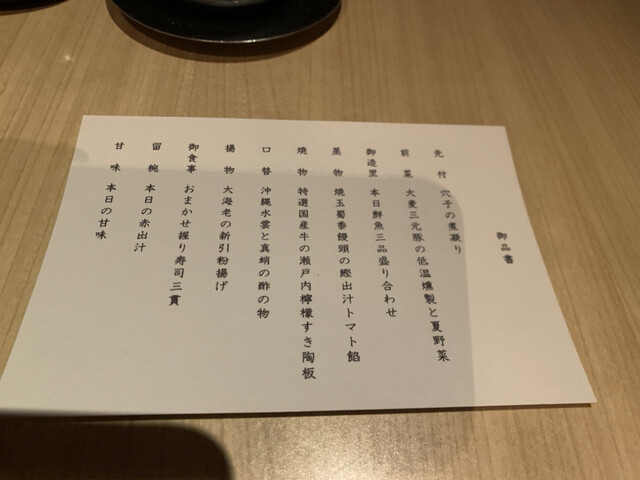 御品書
先付 穴子の煮凝り
前菜 大麦三元豚の低温燻製と夏野菜
御造里 本日鮮魚三品盛り合わせ
蒸物 焼玉蜀黍饅頭の鰹出汁トマト餡
焼物 特選国産牛の瀬戸内檸檬すき陶板
口替 沖縄水雲と真蛸の酢の物
揚物 大海老の新引粉揚げ
御食事 おまかせ握り寿司三貫
留椀 本日の赤出汁
甘味 本日の甘味